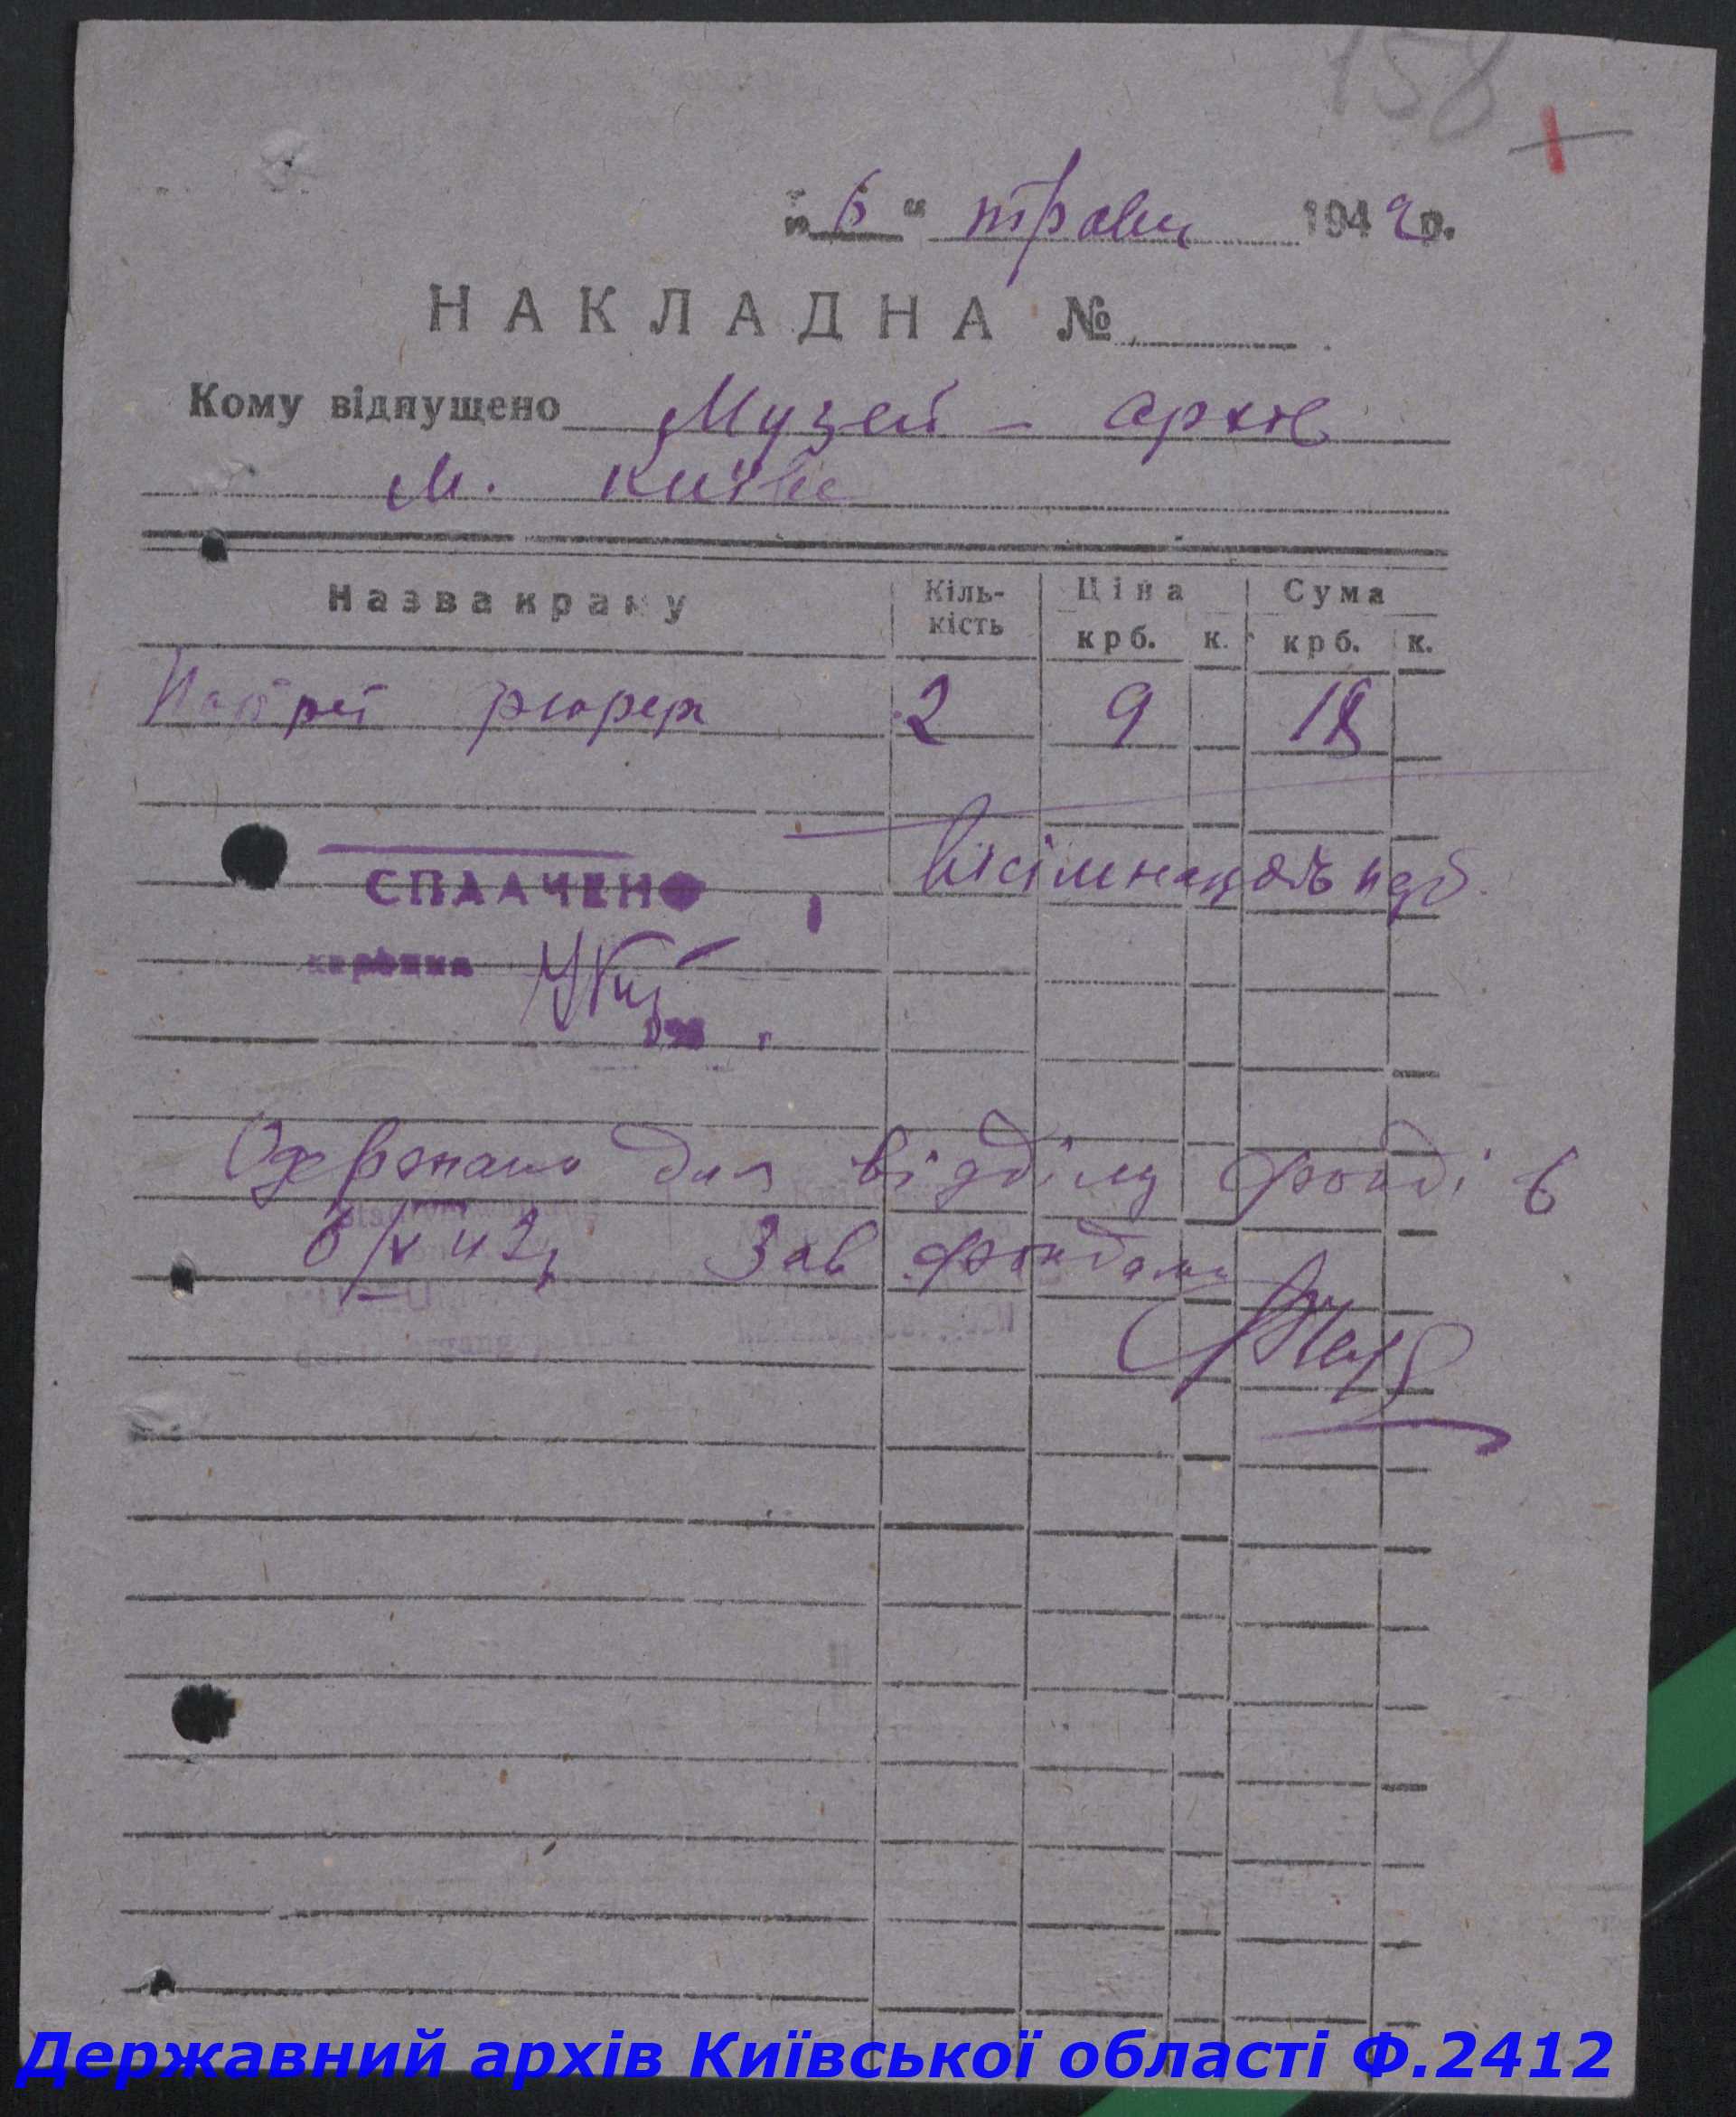 158
"6" травн 1942 р.
НАКЛАДНА №
Кому відпущено Музей - архів
м. Київа
Назва краму Кіль-кість Ціна крб. к. Сума крб. к.
Портрет фюрер 2 9 18
Вісімнадцять крб.
СПЛАЧЕНО
194 г
Одержано для відділу фондів
6/V 42 р Зав фондами
Державний архів Київської області Ф.2412